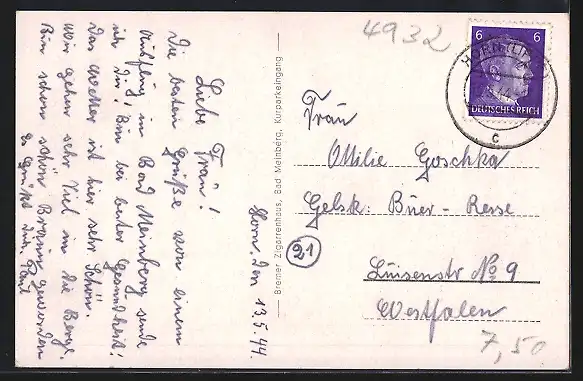 4932
6 6
HORN (LIPPE)
DEUTSCHES REICH
c
Horn. Den 13.5.44.
Liebe Frau!
Die besten Grüße von einem
Ausflug in Bad Meinberg sende
ich dir! Bin bei bester Gesundheit!
Das Wetter ist hier sehr Schön.
Wir gehen sehr Viel in die Berge.
Bin schon schön Braun geworden
Es Grüßt Dich Paul
Bremer Zigarrenhaus, Bad Meinberg, Kurparkeingang
Frau
Ottilie Goschka
Gelsk. Büer - Resse
21
Luisenstr No 9
Westfalen
7,50